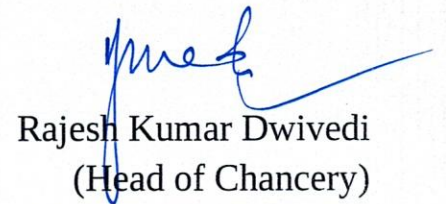 Rajesh Kumar Dwivedi
(Head of Chancery)